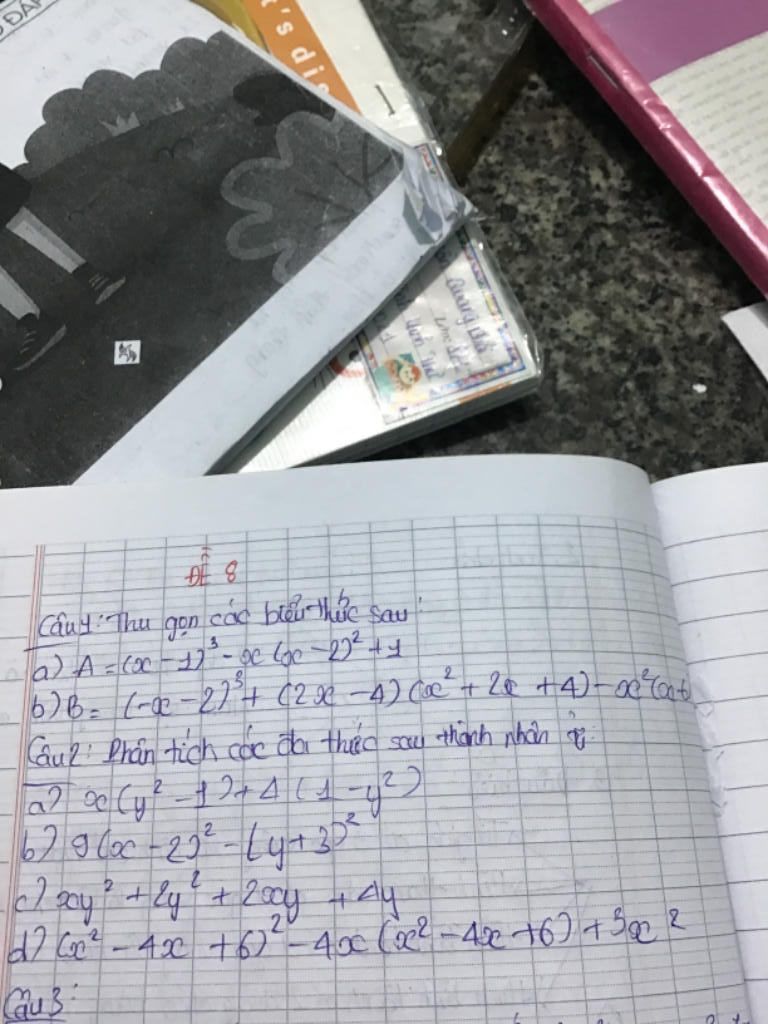 t's dis
ĐỀ 8
Câu 1: Thu gọn các biểu thức sau:
a) A = (x - 1)³ - x (x - 2)² + 1
b) B = (-x - 2)³ + (2x - 4) (x² + 2x + 4) - x² (x +
Câu 2: Phân tích các đa thức sau thành nhân tử:
a) x (y² - 1) + 4 (1 - y²)
b) 9 (x - 2)² - (y + 3)²
c) xy² + 2y² + 2xy + 4y
d) (x² - 4x + 6)² - 4x (x² - 4x + 6) + 3x²
Câu 3: